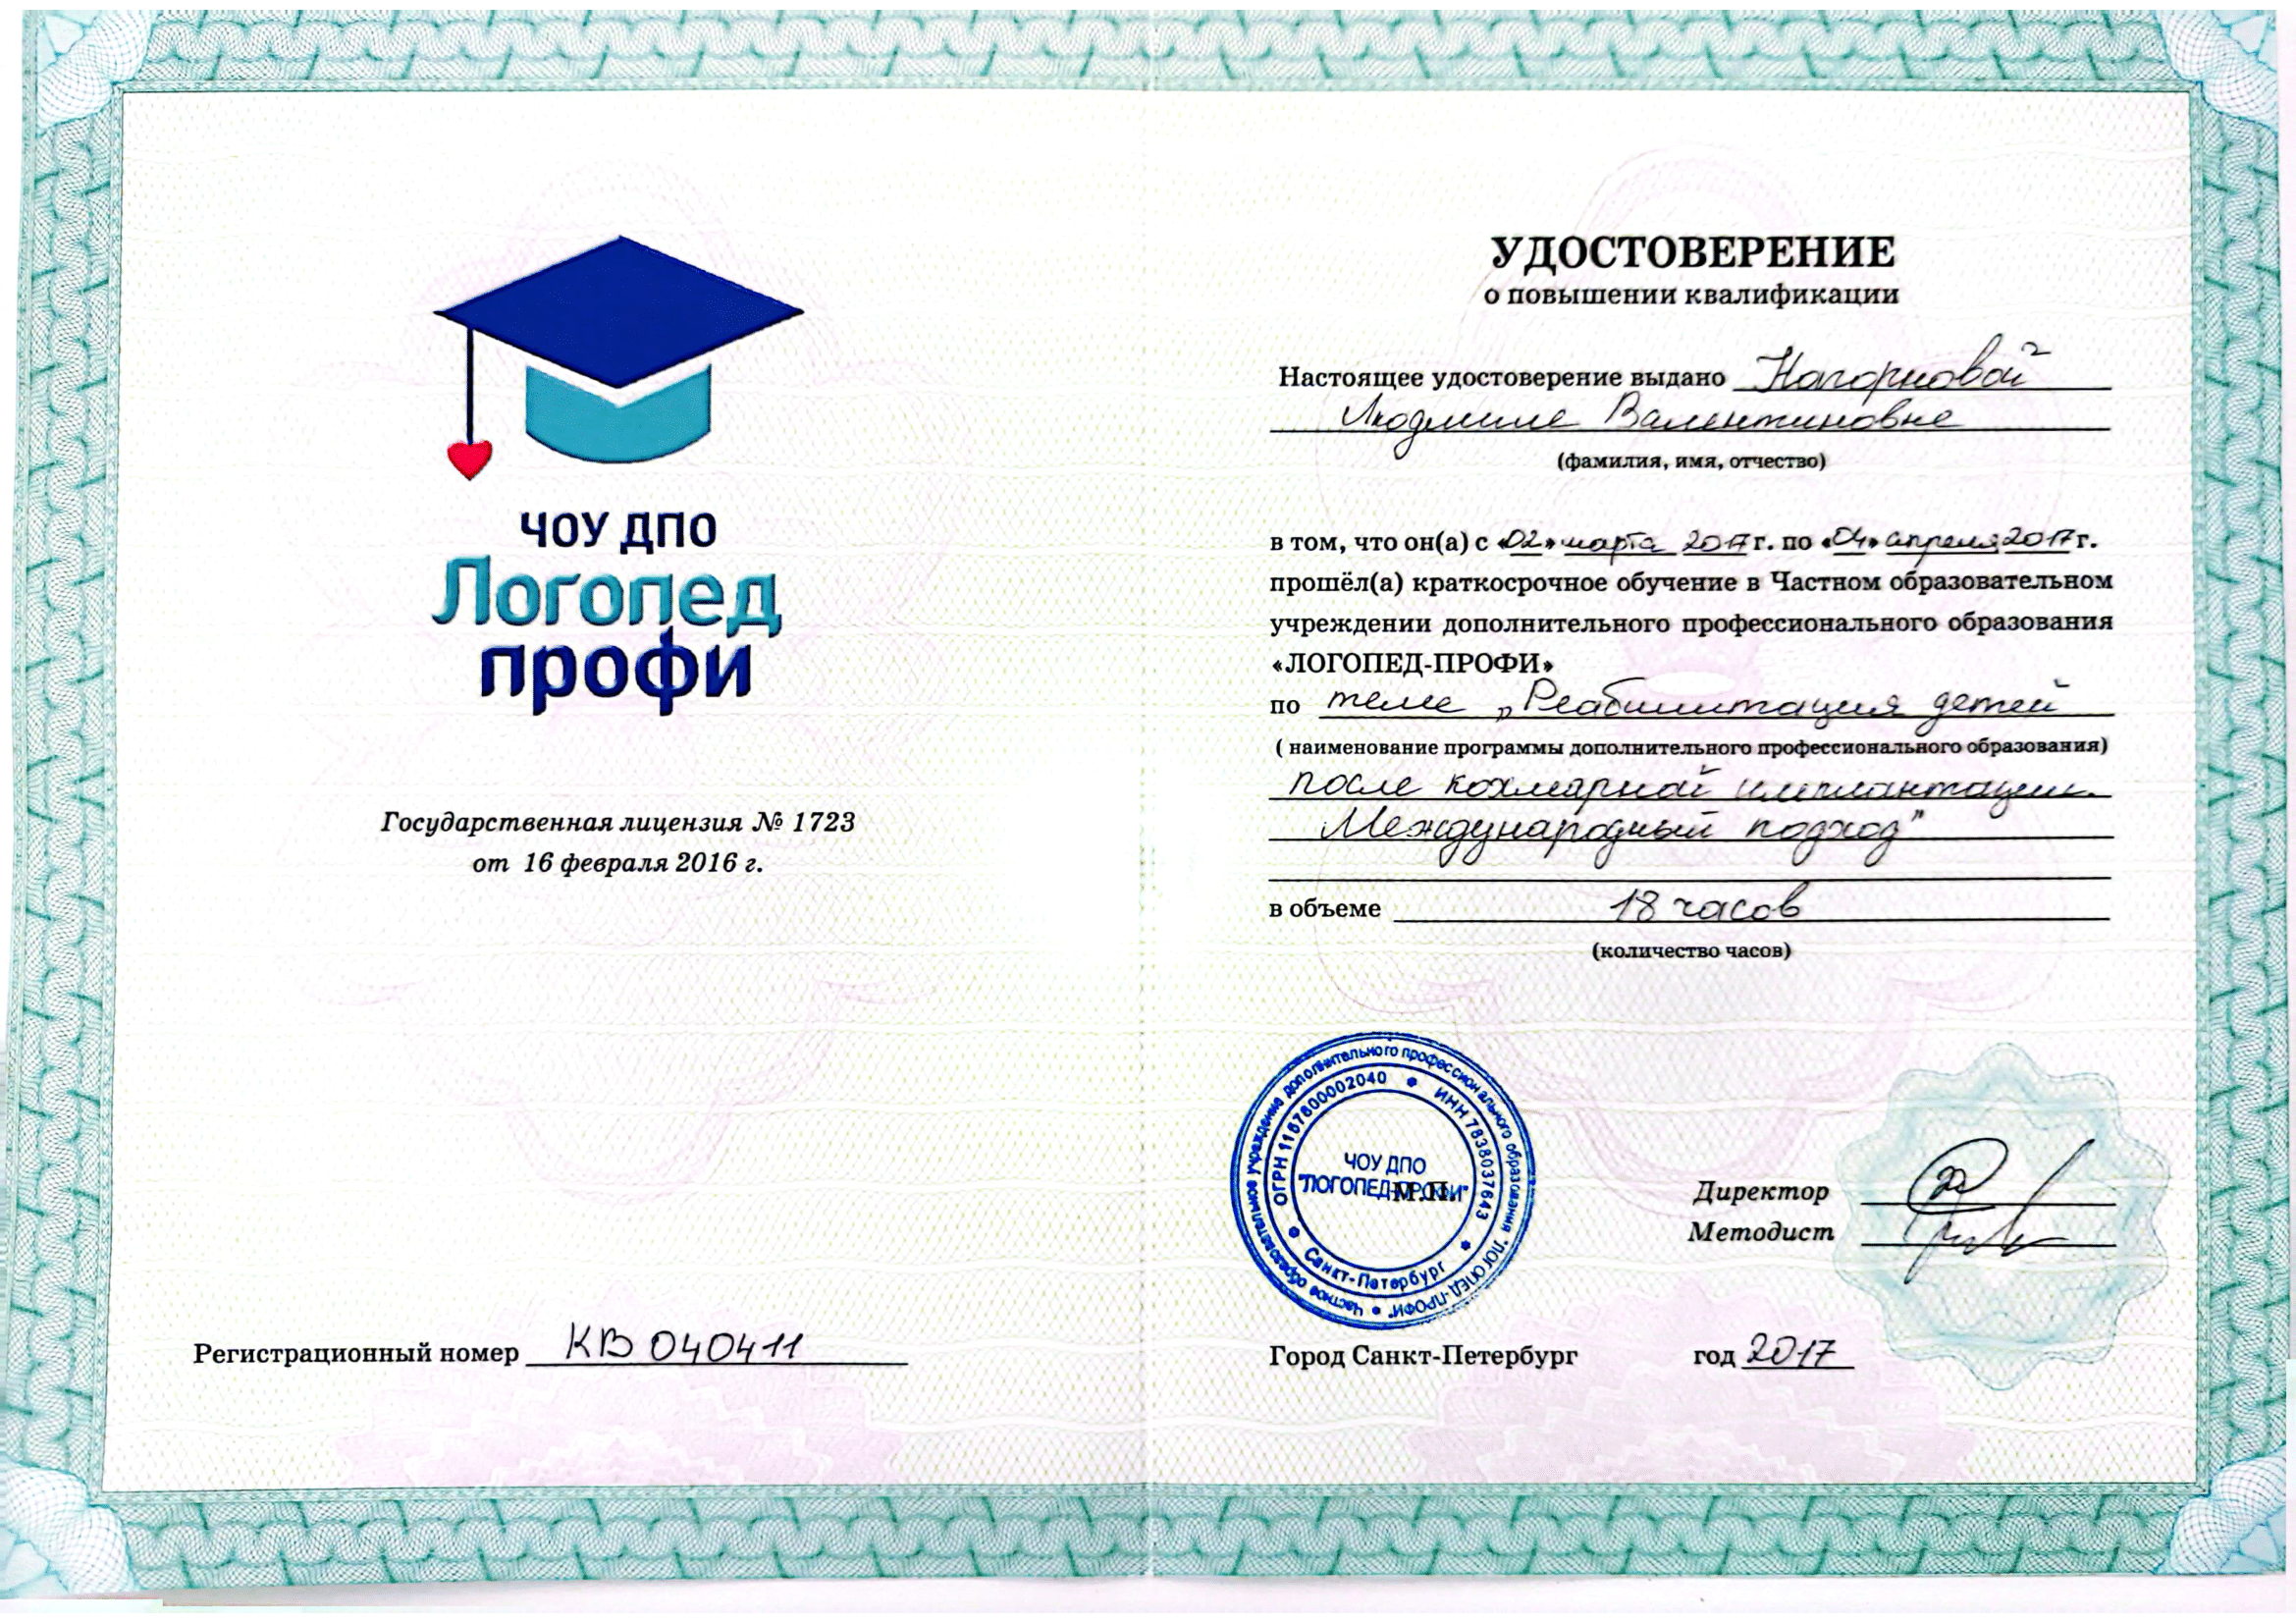 ЧОУ ДПО
Логопед
профи
Государственная лицензия № 1723
от 16 февраля 2016 г.
Регистрационный номер КВ 040411
УДОСТОВЕРЕНИЕ
о повышении квалификации
Настоящее удостоверение выдано Нагорновой
Людмиле Валентиновне
(фамилия, имя, отчество)
в том, что он(а) с «02» марта 2017 г. по «04» апреля 2017 г.
прошёл(а) краткосрочное обучение в Частном образовательном
учреждении дополнительного профессионального образования
«ЛОГОПЕД-ПРОФИ»
по теме „Реабилитация детей
( наименование программы дополнительного профессионального образования)
после кохлеарной имплантации.
Международный подход"
в объеме 18 часов
(количество часов)
Частное образовательное учреждение дополнительного профессионального образования "ЛОГОПЕД-ПРОФИ"
ОГРН 1167800002040 ИНН 7838037643
ЧОУ ДПО
"ЛОГОПЕД-ПРОФИ"
М.П.
Санкт-Петербург
Директор
Методист
Город Санкт-Петербург год 2017